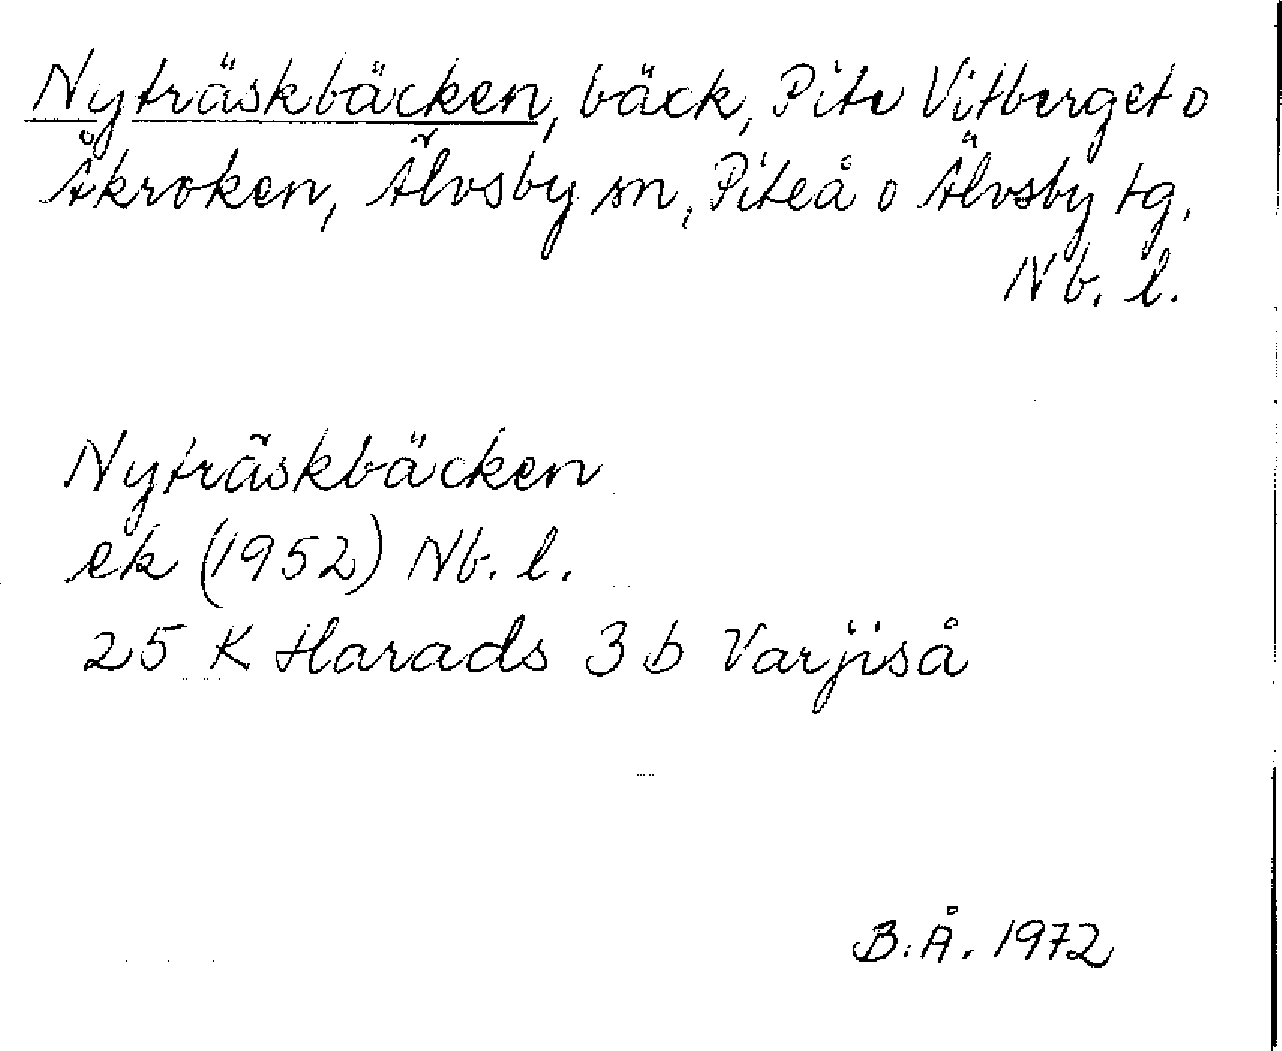 Nyträskbäcken, bäck, Pite Vitberget o
Åkroken, Älvsby sn, Piteå o Älvsby tg,
Nb. l.
Nyträskbäcken
ek (1952) Nb. l.
25 K Harads 3 b Varjiså
B.Å. 1972